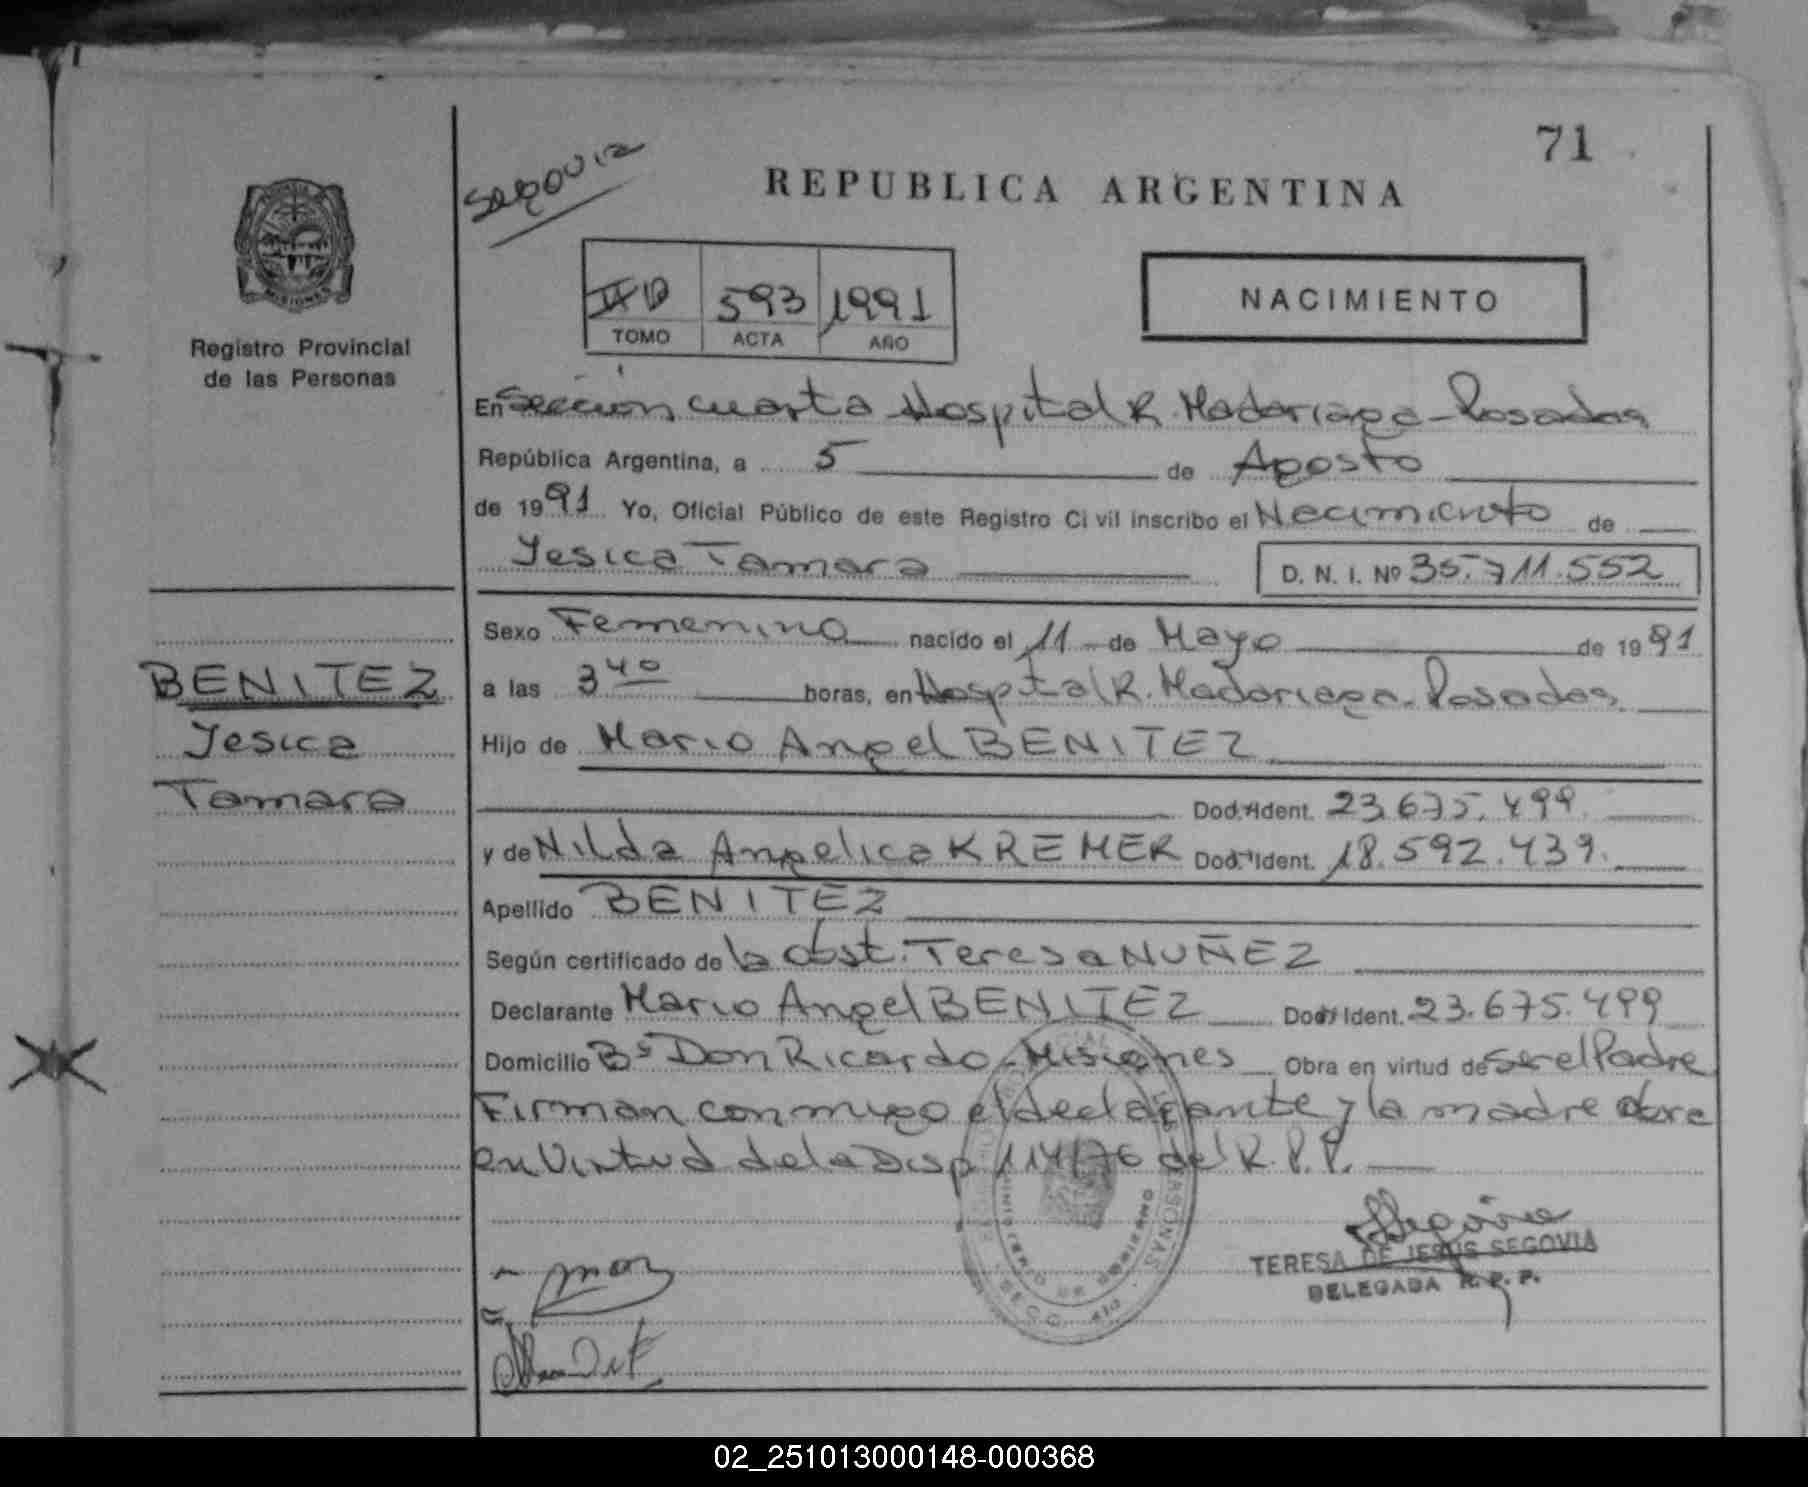 71
Segovia
REPUBLICA ARGENTINA
MISIONES
Registro Provincial
de las Personas
593 1991
TOMO ACTA AÑO
NACIMIENTO
En Sección cuarta Hospital R. Madariaga - Posadas
República Argentina, a 5 de Agosto
de 1991 Yo, Oficial Público de este Registro Civil inscribo el Nacimiento de
Yesica Tamara D. N. I. Nº 35.711.552
Sexo Femenino nacido el 11 de Mayo de 1991
a las 3 40 horas, en Hospital R. Madariaga - Posadas
Hijo de Mario Angel BENITEZ
Doc. Ident. 23.675.499.
y de Nilda Angelica KREMER Doc. Ident. 18.592.439.
Apellido BENITEZ
Según certificado de la obst. Teresa NUÑEZ
Declarante Mario Angel BENITEZ Doc. Ident. 23.675.499
Domicilio Bº Don Ricardo - Misiones Obra en virtud de ser el Padre
Firman conmigo el declarante y la madre obra
en virtud de la Disp 114/76 del R.P.P.
BENITEZ
Yesica
Tamara
TERESA DE JESUS SEGOVIA
DELEGADA R. P. P.
02_251013000148-000368